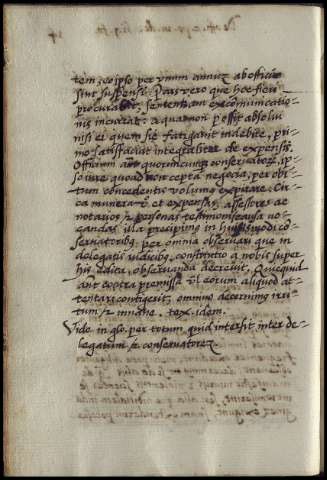 tem, eo ipso per vnum annuʒ ab officio
sint suspensi. Pars vero que hoc fieri
procurabit, sententiam excōmunicatio-
nis incurrat: a qua non possit absolui
nisi ei quem sic fatigarit indebite, pri-
mo satisfaciat integraliter de expensis.
Officium aūt quorumcunqʒ conseruatorʒ, ip-
so iure quoad non cepta negocia, per obi-
tum concedentis volumus expirare. Cir-
ca munera vō et expensas, assessores ac
notarios et personas testimonii causa uo-
candas illa precipimus in huiusmodi cō-
seruatoribʒ per omnia obseruari que in
delegatis iudicibʒ, constitutio a nobis super
his edita, obseruanda decreuit. Quicquid
aūt contra premissa vel eorum aliquod at-
tentari contigerit, omnino decernimus irri-
tum et inane. tex. idem.
Vide in glo. per totum quid intersit inter de-
legatum et conseruatorem